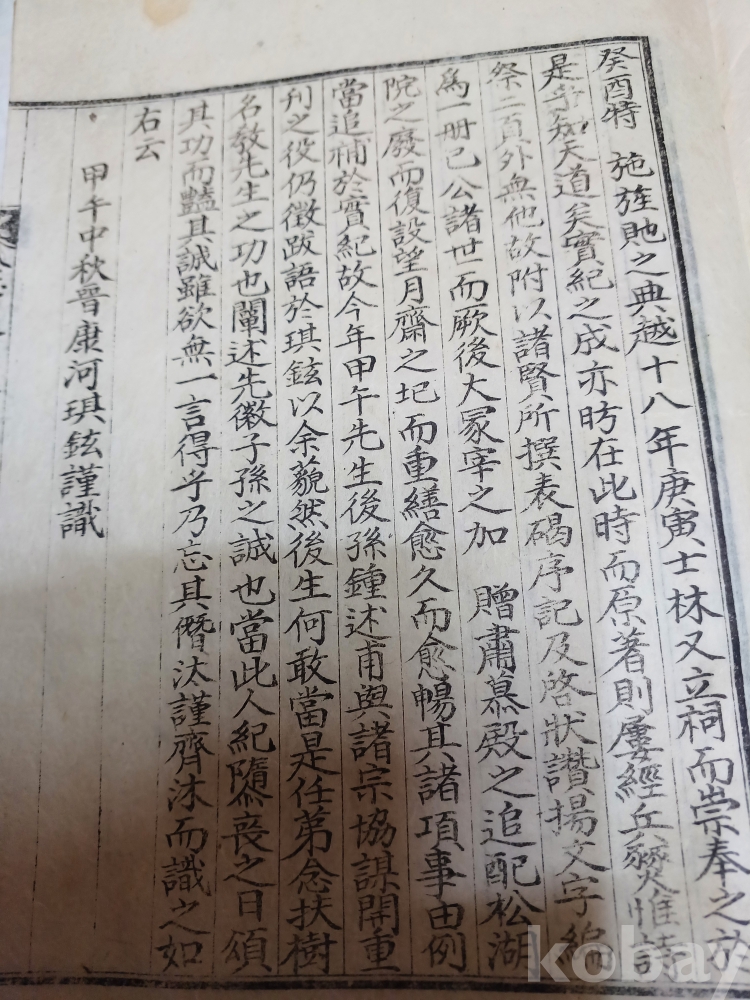 癸酉特 施旌貤之典越十八年庚寅士林又立祠而崇奉之於
是乎知天道矣實紀之成亦昉在此時而原著則屢經兵燹惟詩
祭二頁外無他故附以諸賢所撰表碣序記及啓狀讚揚文字編
爲一冊已公諸世而厥後大冢宰之加 贈肅慕殿之追配松湖
院之廢而復設望月齋之圮而重繕愈久而愈暢其諸項事由例
當追補於實紀故今年甲午先生後孫鍾述甫與諸宗協謀開重
刊之役仍徵跋語於琪鉉以余藐然後生何敢當是任第念扶樹
名敎先生之功也闡述先徽子孫之誠也當此人紀隳喪之日頌
其功而豔其誠雖欲無一言得乎乃忘其僭汰謹齊沐而識之如
右云
甲午中秋晉康河琪鉉謹識
kobay